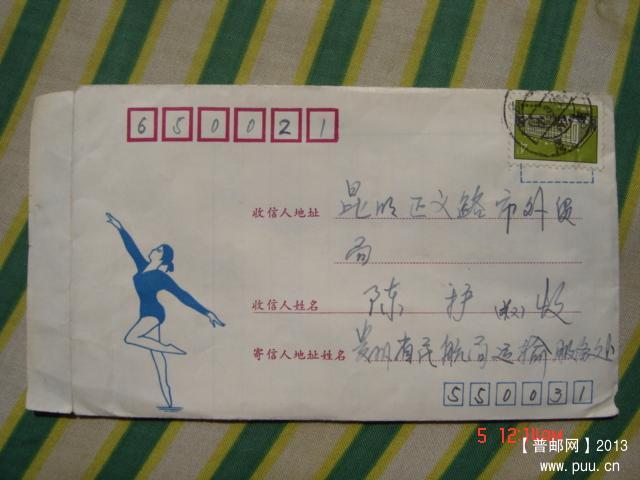 650021
收信人地址 昆明正义路市外贸
局
收信人姓名 陈 护 收
寄信人地址姓名 贵州省民航局运输服务处
550031
5 12:14PM
【普邮网】2013
www.puu.cn